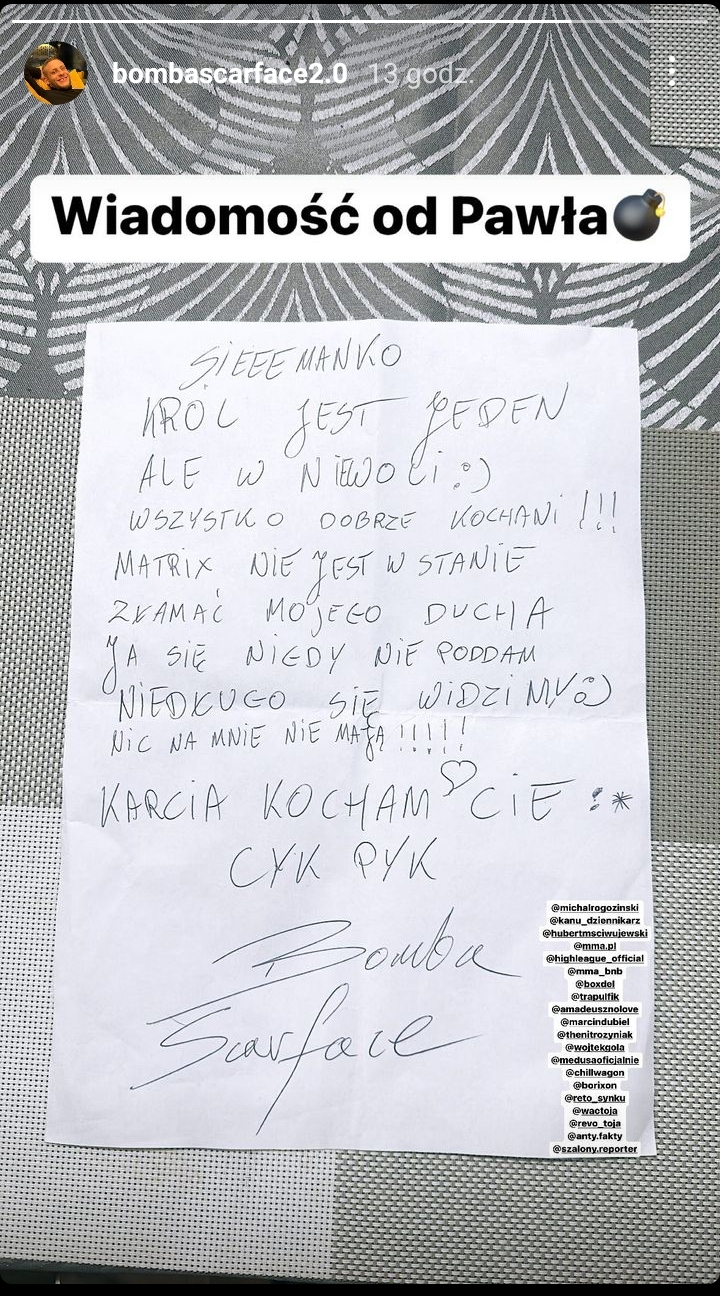 bombascarface2.0 13 godz.
Wiadomość od Pawła💣
SIEEEMANKO
KRÓL JEST JEDEN
ALE W NIEWOLI :)
WSZYSTKO DOBRZE KOCHANI !!!
MATRIX NIE JEST W STANIE
ZŁAMAĆ MOJEGO DUCHA
JA SIĘ NIGDY NIE PODDAM
NIEDŁUGO SIĘ WIDZIMY :)
NIC NA MNIE NIE MAJĄ !!!!!
KARCIA KOCHAM ♡ CIE :*
CYK PYK
Bomba
Scarface
@michalrogozinski
@kanu_dziennikarz
@hubertmsciwujewski
@mma.pl
@highleague_official
@mma_bnb
@boxdel
@trapulfik
@amadeusznolove
@marcindubiel
@thenitrozyniak
@wojtekgola
@medusaoficjalnie
@chillwagon
@borixon
@reto_synku
@wactoja
@revo_toja
@anty.fakty
@szalony.reporter